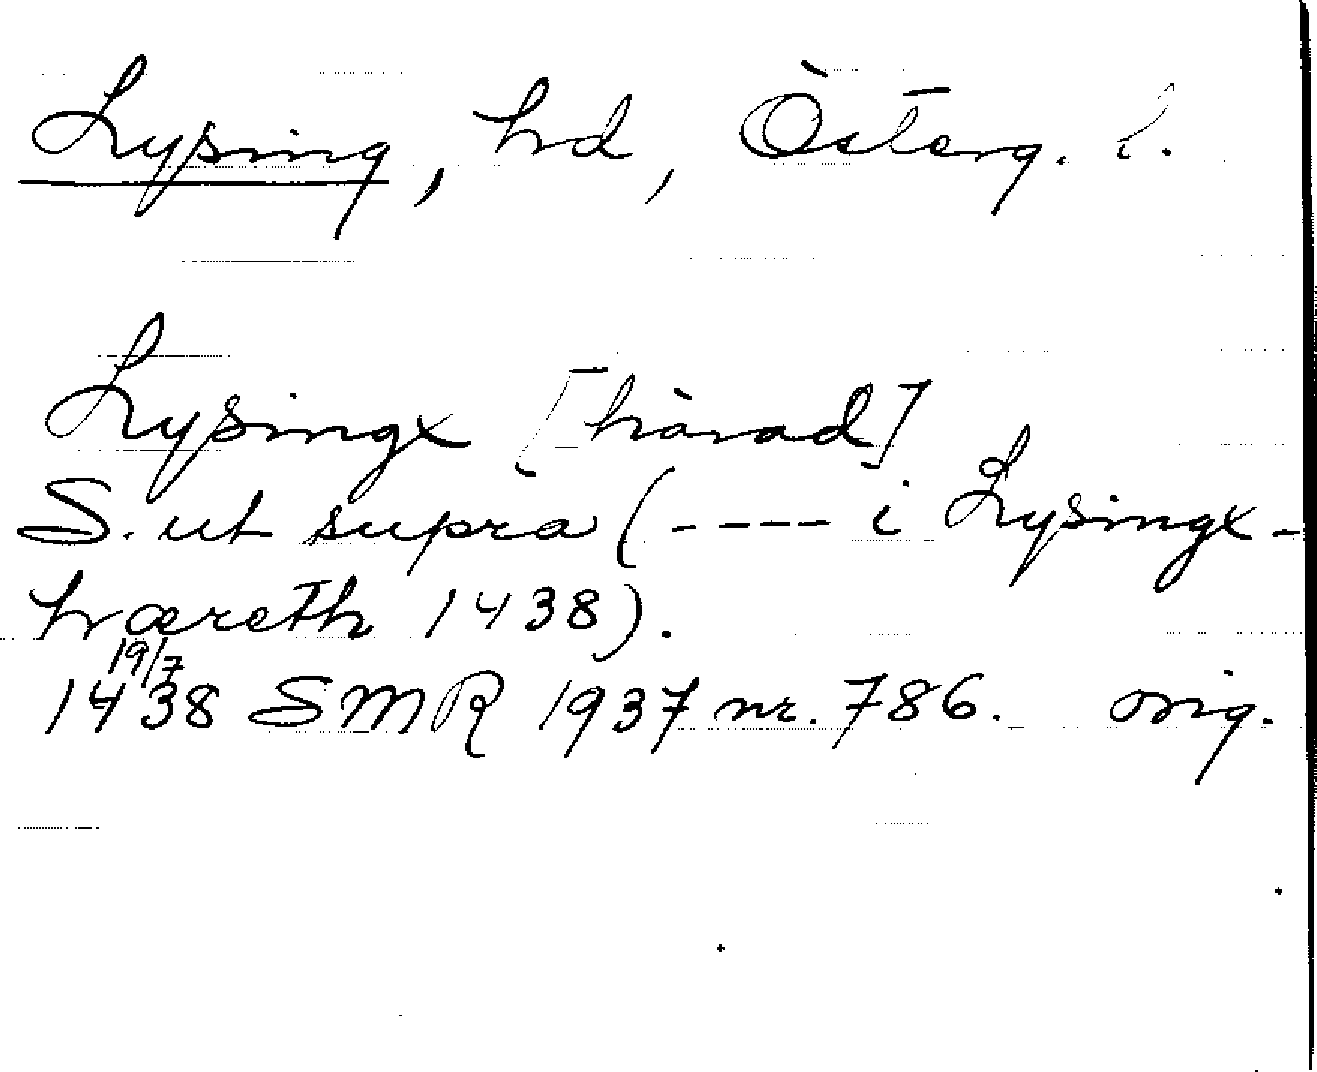 Lysing, hd, Österg. l.
Lysingx [härad]
S. ut supra (---- i Lysingx-
hæreth 1438).
19/7
1438 SMR 1937 nr. 786. orig.